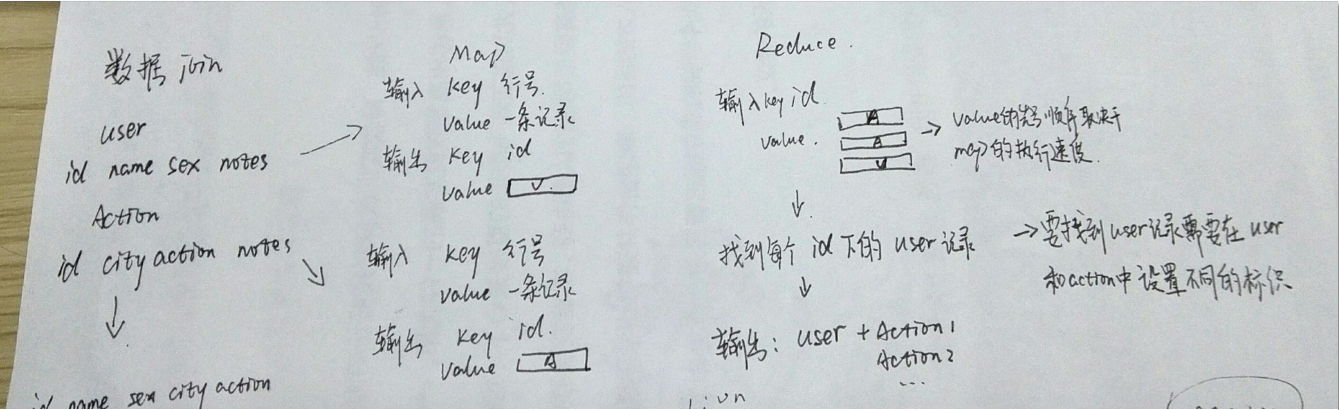 数据 join
user
id name sex notes
Action
id city action notes
id name sex city action
Map
输入 key 行号
value 一条记录
输出 key id
value U
输入 key 行号
value 一条记录
输出 key id.
value A
Reduce.
输入 key id
value.
A
A
U
→ value的先后顺序取决于
map的执行速度.
找到每个 id 下的 user 记录
→要找到user记录需要在 user
和action中设置不同的标识
输出: user + Action1
Action2
...